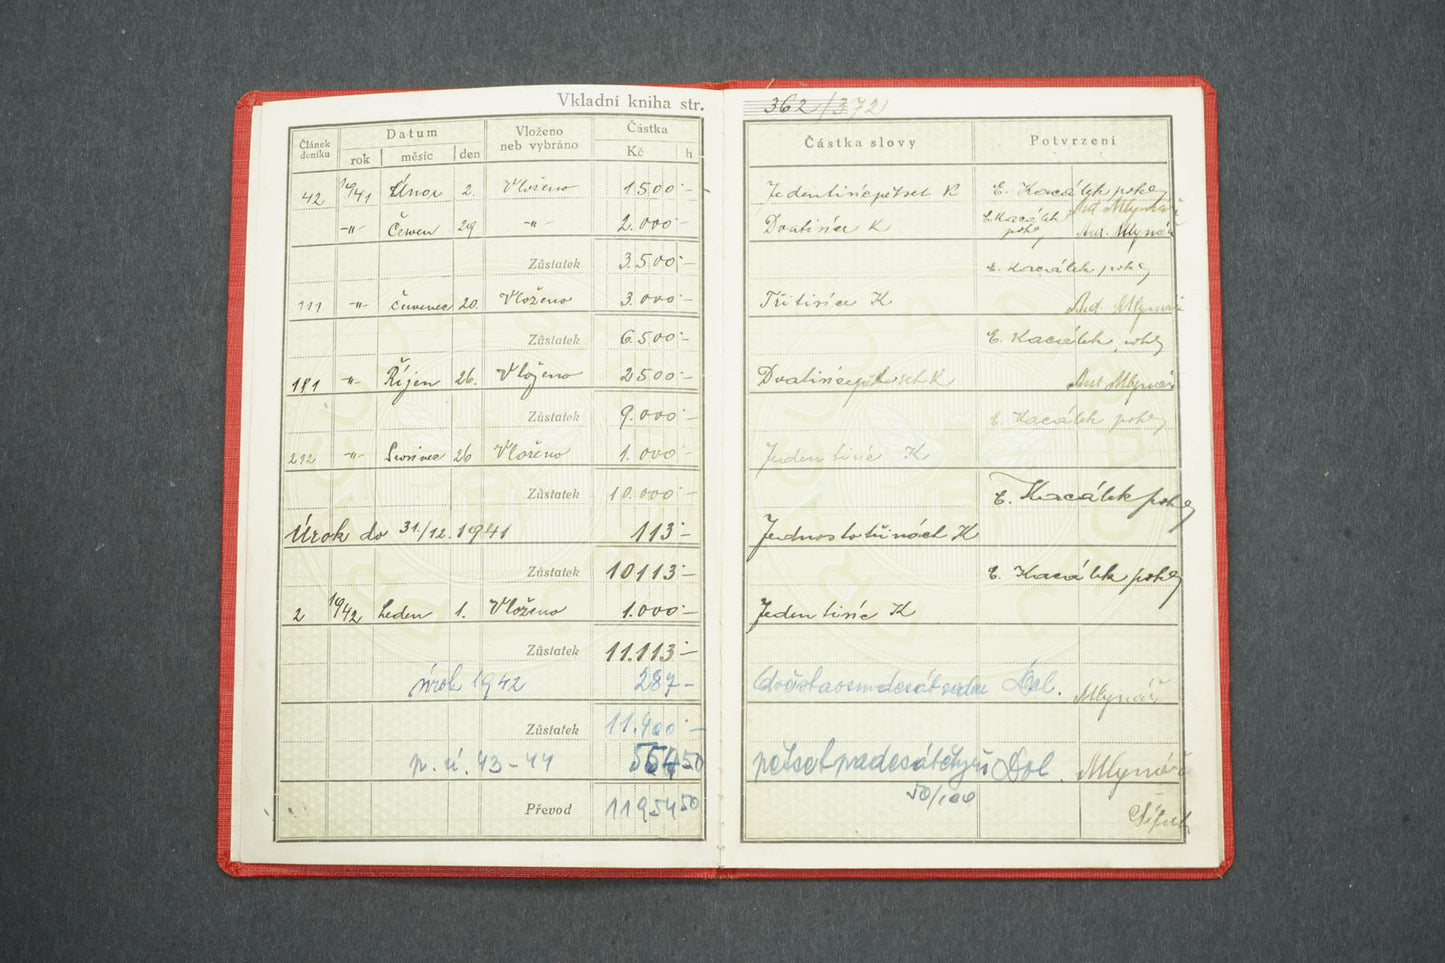 Vkladní kniha str. 362/372
Článek deníku | Datum | Vloženo neb vybráno | Částka | Částka slovy | Potvrzení
rok | měsíc | den | Kč | h
42 1941 Únor 2. Vloženo 1500·- Jedentisícpětset K E. Kacálek pokl. Ant. Mlynář
-"- Červen 29 -"- 2.000·- Dvatisíce K E. Kacálek pokl. Ant. Mlynář
Zůstatek 3.500·- E. Kacálek pokl.
111 -"- Červenec 20. Vloženo 3.000·- Třitisíce K Ant. Mlynář
Zůstatek 6.500·- E. Kacálek, pokl.
181 -"- Říjen 26. Vloženo 2500·- Dvatisícepětset K Ant. Mlynář
Zůstatek 9.000·- E. Kacálek pokl.
212 -"- 26 Vloženo 1.000·- Jedentisíc K
Zůstatek 10.000·- E. Kacálek pokl.
Úrok do 31./12. 1941 113·- Jednostotřináct K
Zůstatek 10113·- E. Kacálek pokl.
2 1942 Leden 1. Vloženo 1.000·- Jedentisíc K
Zůstatek 11.113·-
úrok 1942 287- dvěstaosmdesátsedm Dol. Mlynář
Zůstatek 11.400·-
p. ú. 43-44 554 50 pětsetpadesátčtyři 50/100 Dol. Mlynář
Převod 11954 50